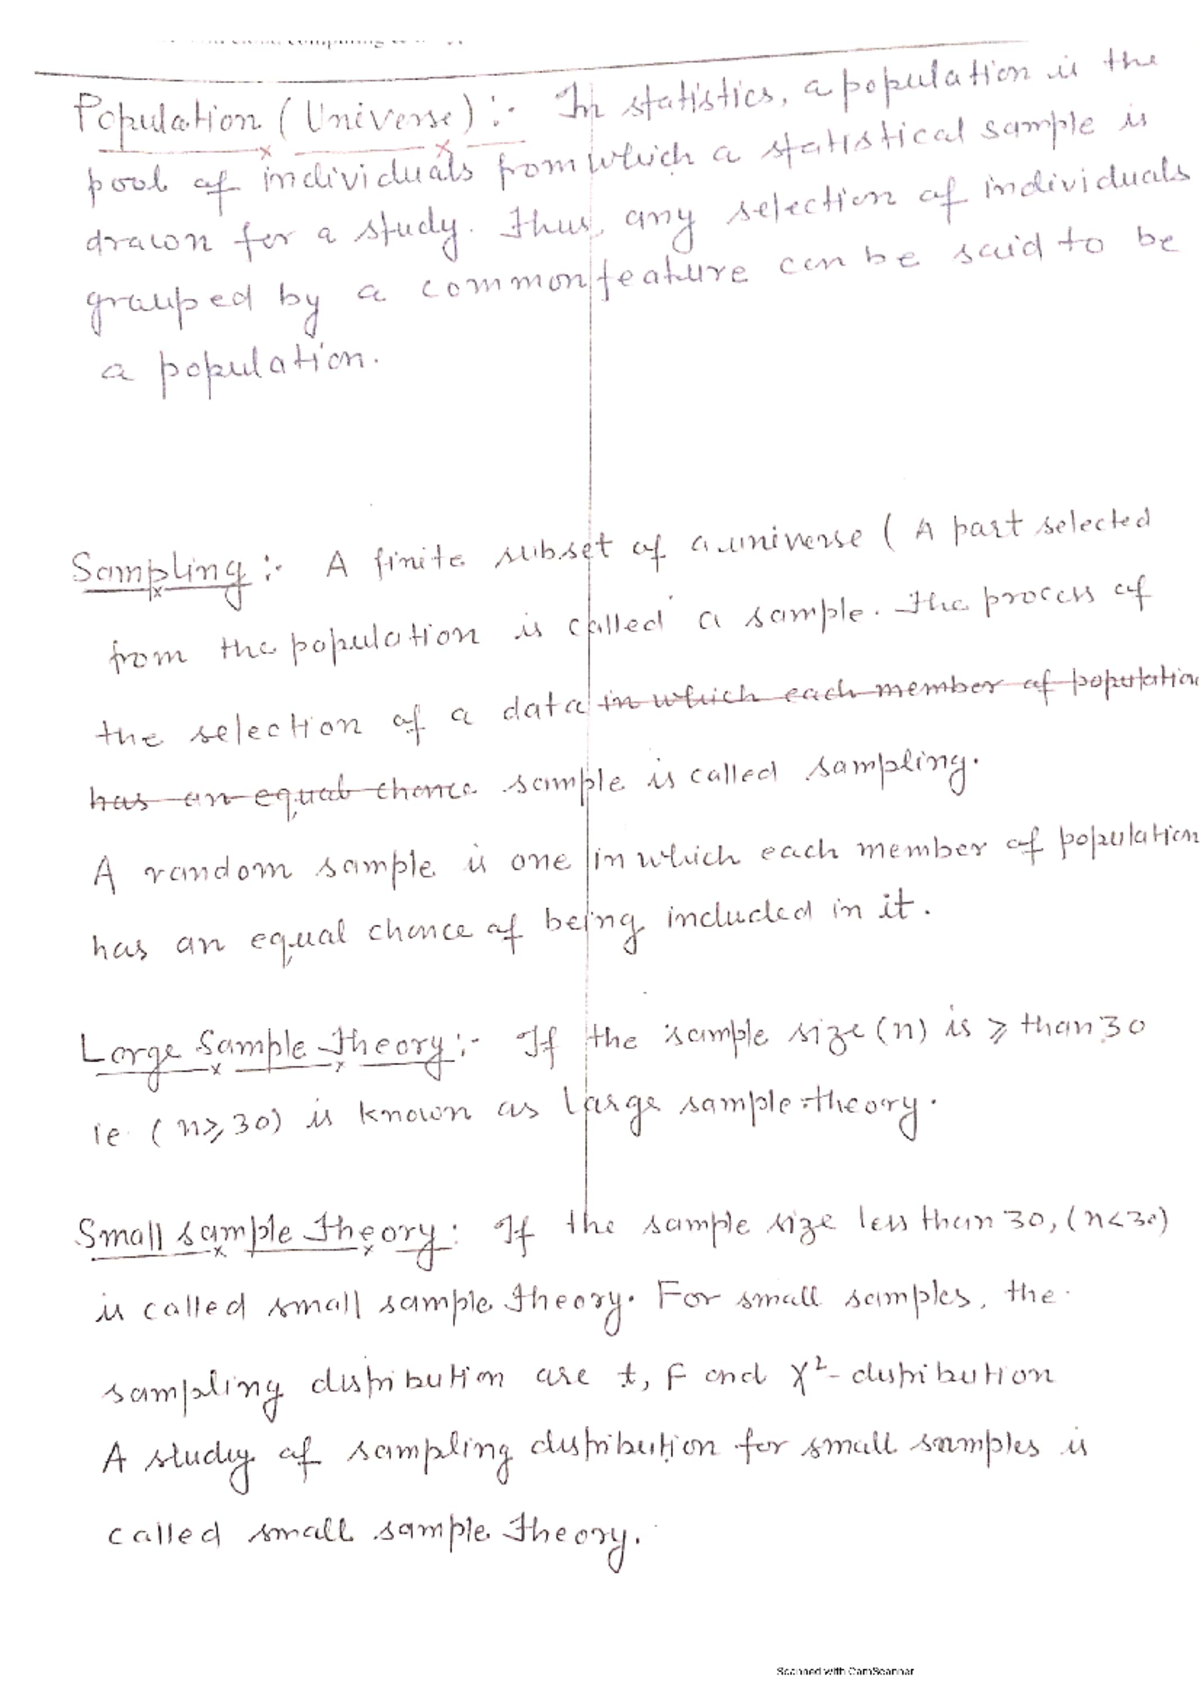 Population (Universe) :- In statistics, a population is the
pool of individuals from which a statistical sample is
drawn for a study. Thus, any selection of individuals
grouped by a common feature can be said to be
a population.
Sampling :- A finite subset of a universe ( A part selected
from the population is called a sample. The process of
the selection of a data in which each member of population
has an equal chance sample is called sampling.
A random sample is one in which each member of population
has an equal chance of being included in it.
Large Sample Theory :- If the sample size (n) is ≥ than 30
ie (n≥30) is known as large sample theory.
Small sample Theory : If the sample size less than 30, (n<30)
is called small sample Theory. For small samples, the
sampling distribution are t, F and χ²- distribution
A study of sampling distribution for small samples is
called small sample Theory.
Scanned with CamScanner